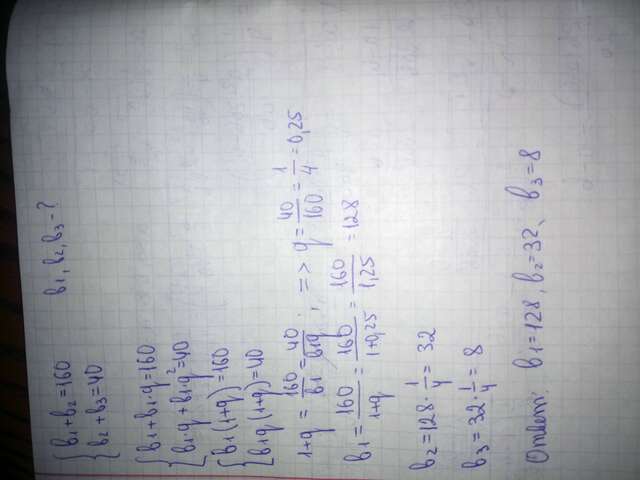 { b₁+b₂=160      b₁, b₂, b₃ - ?
{ b₂+b₃=40
{ b₁+b₁·q=160
{ b₁·q+b₁·q²=40
{ b₁(1+q)=160
{ b₁q(1+q)=40
1+q = 160/b₁ = 40/b₁q ; => q = 40/160 = 1/4 = 0,25
b₁ = 160/1+q = 160/1+0,25 = 160/1,25 = 128
b₂ = 128·1/4 = 32
b₃ = 32·1/4 = 8
Ответ: b₁=128, b₂=32, b₃=8